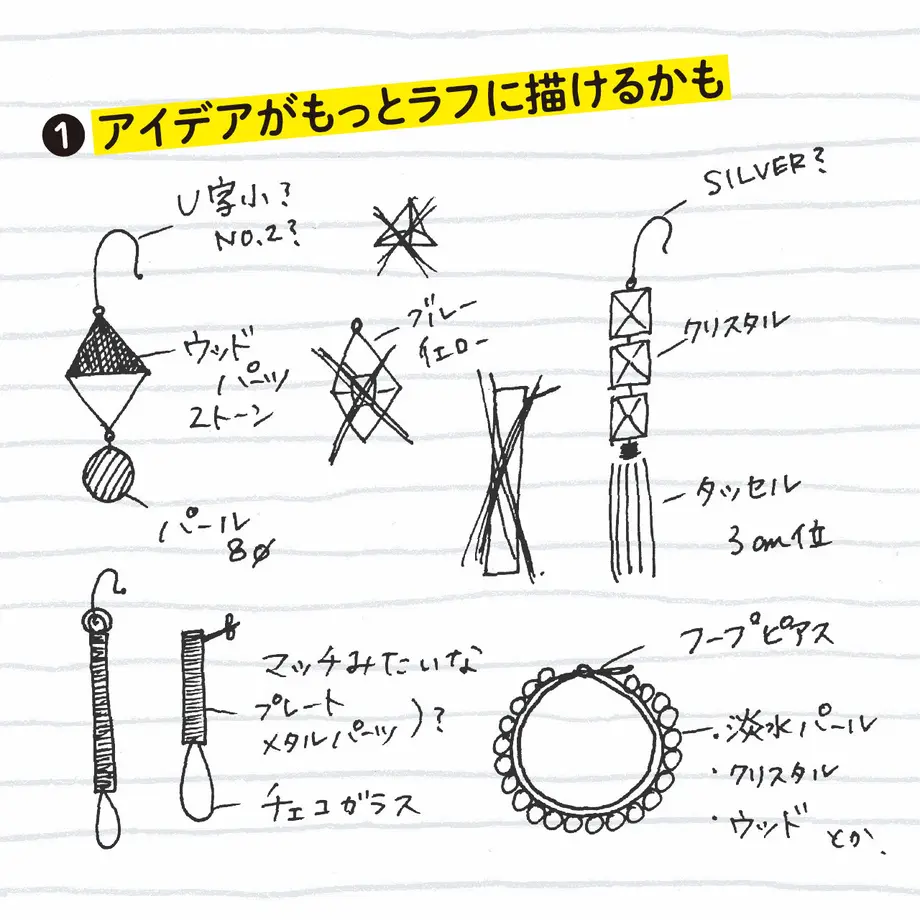 1 アイデアがもっとラフに描けるかも
U字小?
NO.2?
SILVER?
ブルー
イエロー
クリスタル
ウッド
パーツ
2トーン
タッセル
3cm位
パール
8φ
フープピアス
マッチみたいな
プレート
メタルパーツ)?
チェコガラス
・淡水パール
・クリスタル
・ウッド とか.